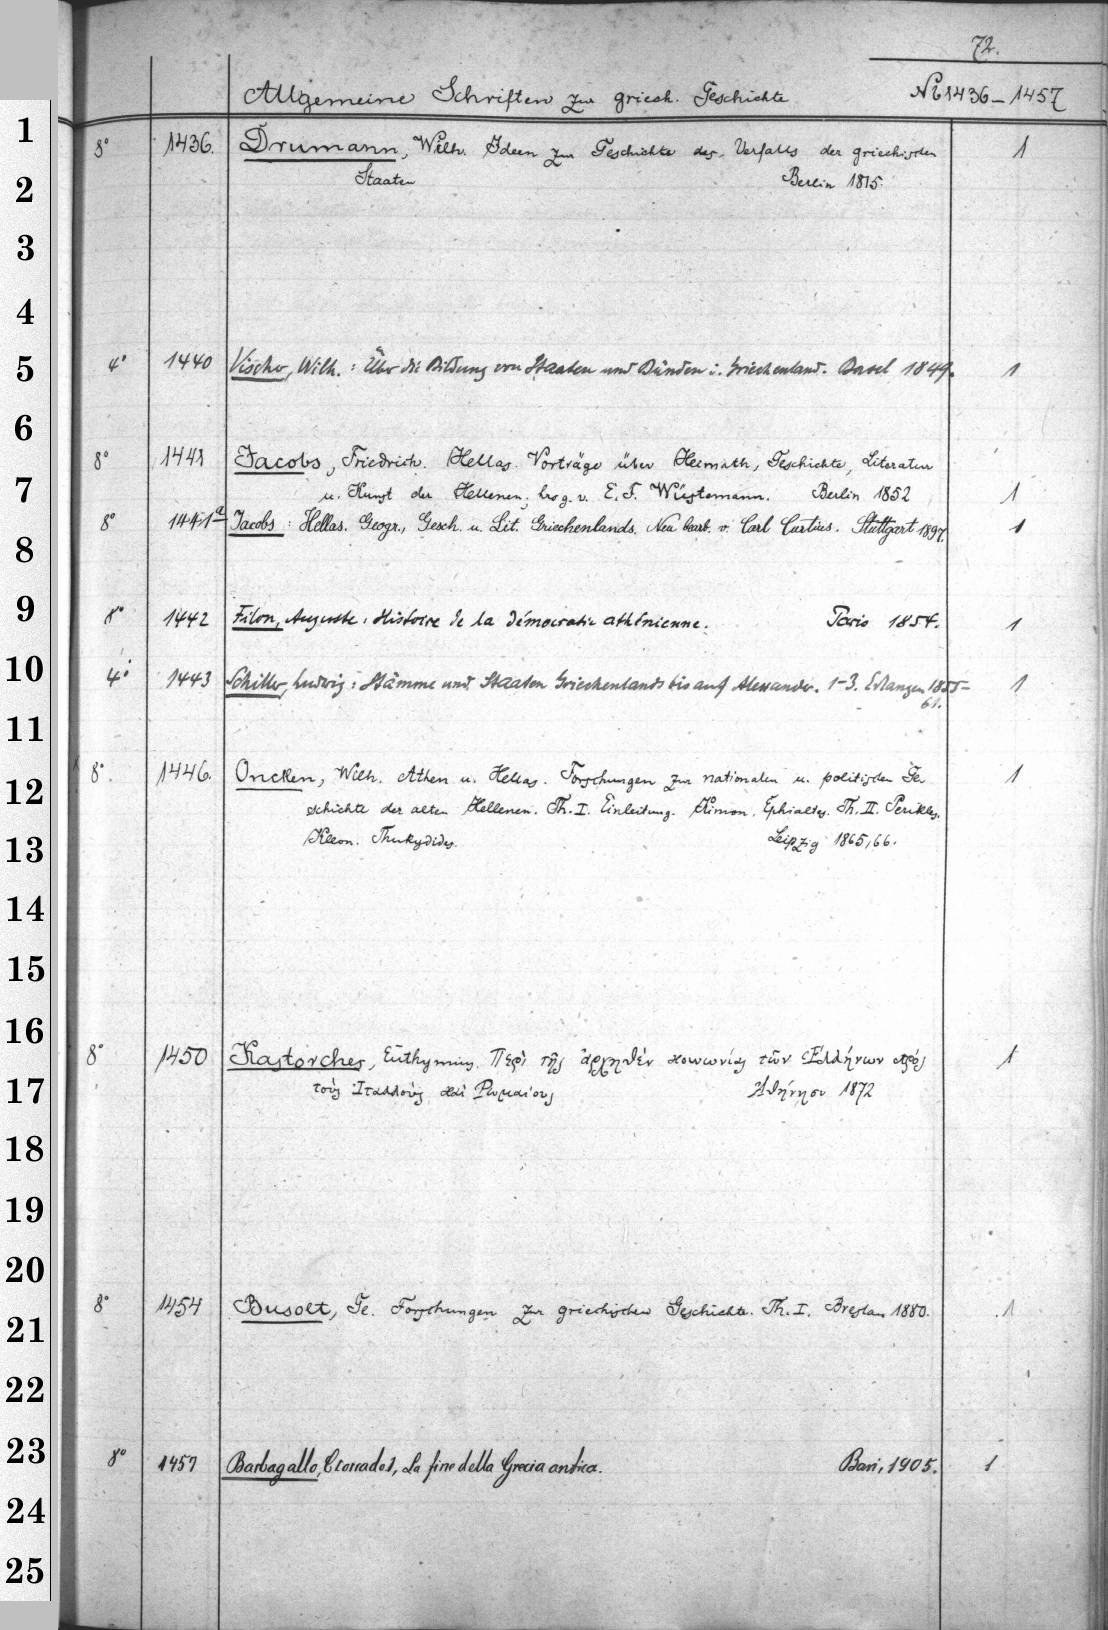 72.
Allgemeine Schriften zur griech. Geschichte № 1436–1457
1
8° 1436. Drumann, Wilh. Ideen zur Geschichte des Verfalls der griechischen 1
2
Staaten Berlin 1815.
3
4
5
4° 1440 Vischer, Wilh.: Über die Bildung von Staaten und Bünden i. Griechenland. Basel 1849. 1
6
8° 1441 Jacobs, Friedrich. Hellas. Vorträge über Heimath, Geschichte, Literatur
7
u. Kunst der Hellenen, hrsg. v. E. F. Wüstemann. Berlin 1852 1
8° 1441a Jacobs: Hellas. Geogr., Gesch. u. Lit. Griechenlands. Neu bearb. v. Carl Curtius. Stuttgart 1897. 1
8
9
8° 1442 Filon, Auguste: Histoire de la démocratie athénienne. Paris 1854. 1
10
4° 1443 Schiller, Ludwig: Stämme und Staaten Griechenlands bis auf Alexander. 1–3. Erlangen 1855–
61. 1
11
8° 1446. Oncken, Wilh. Athen u. Hellas. Forschungen zur nationalen u. politischen Ge 1
12
schichte der alten Hellenen. Th. I. Einleitung. Kimon. Ephialtes. Th. II. Perikles.
13
Kleon. Thukydides. Leipzig 1865,66.
14
15
16
8° 1450 Kastorches, Euthymios. Περὶ τῆς ἀρχῆθεν κοινωνίας τῶν Ἑλλήνων πρὸς 1
17
τοὺς Ἰταλοὺς καὶ Ῥωμαίους Ἀθήνησι 1872
18
19
20
8° 1454 Busolt, Ge. Forschungen zur griechischen Geschichte. Th. I. Breslau 1880. 1
21
22
23
8° 1457 Barbagallo, C[orrado], La fine della Grecia antica. Bari, 1905. 1
24
25